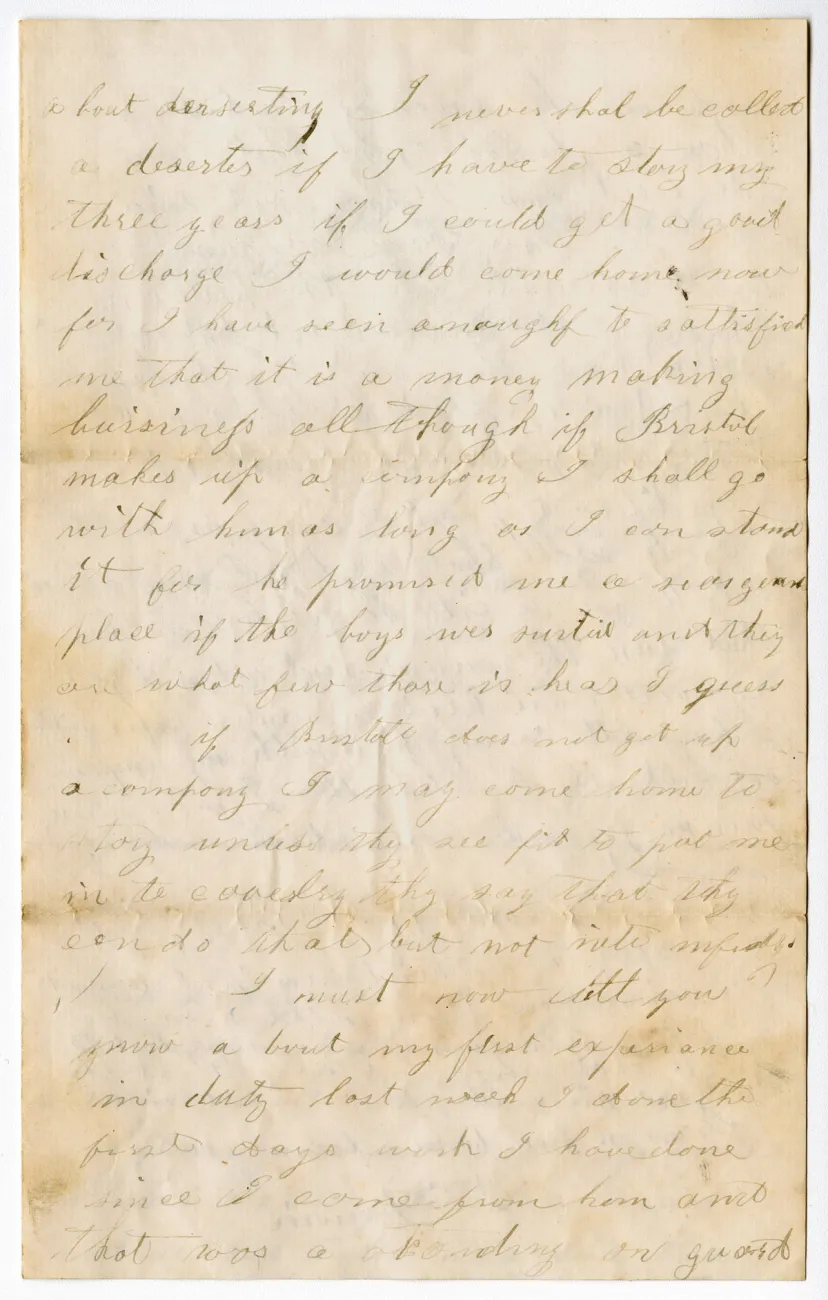 a bout dersserting I never shal be called
a deserter if I have to stay my
three years if I could get a good
discharge I would come home now
for I have seen anoughf to sattisfied
me that it is a money making
buisiness all though if Bristol
makes up a company I shall go
with him as long as I can stand
it for he promised me a seargeant
place if the boys wer suited and they
are what few thare is hear I guess
if Bristol does not get up
a company I may come home to
stay unless thy see fit to put me
in to cavelry thy say that thy
can do that but not into
I must now tell you
a bout my first experiance
in duty last week I done the
first days work I have done
since I come from hom and
that was a standing on guard